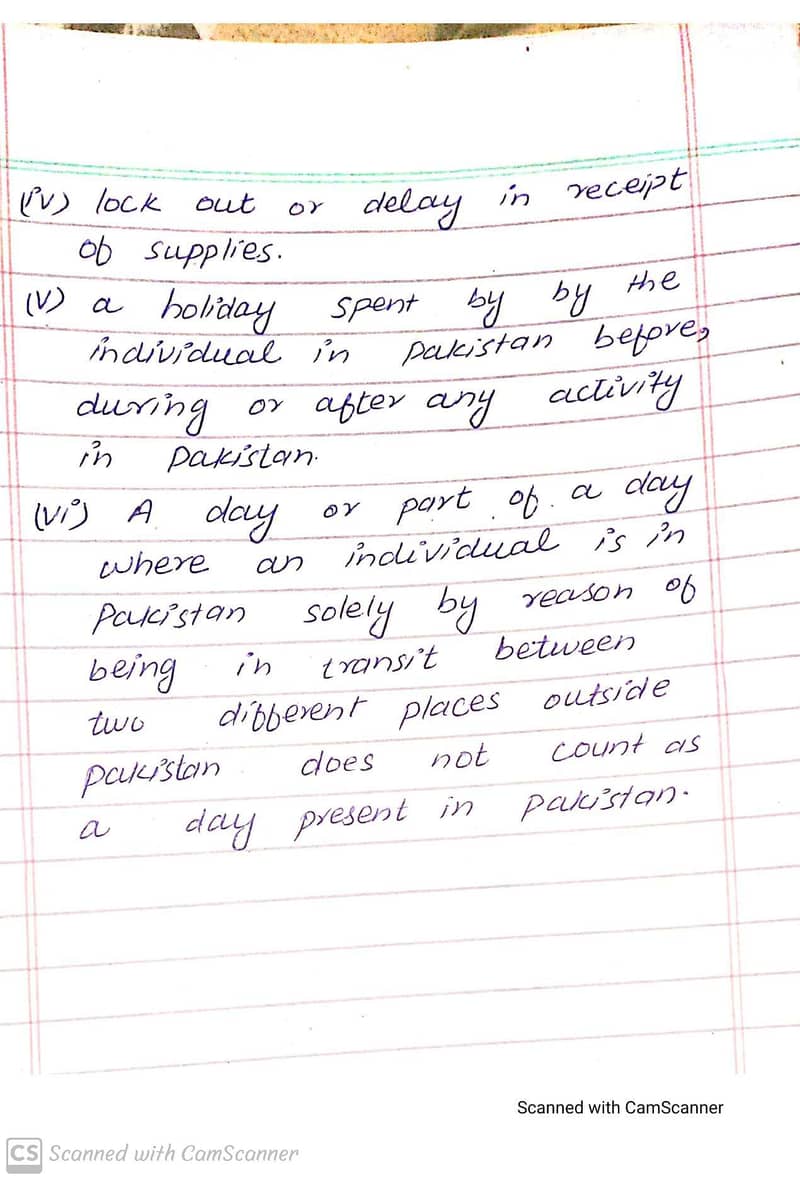 (iv) lock out or delay in receipt
of supplies.
(v) a holiday spent by by the
individual in pakistan before,
during or after any activity
in pakistan.
(vi) A day or part of a day
where an individual is in
Pakistan solely by reason of
being in transit between
two different places outside
pakistan does not count as
a day present in pakistan.
Scanned with CamScanner
CS Scanned with CamScanner